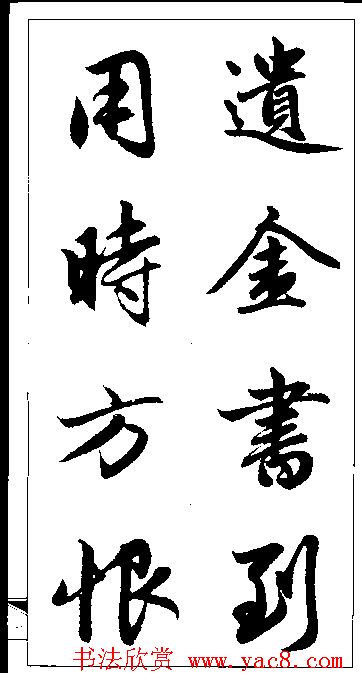 遺金書到
用時方恨
书法欣赏 www.yac8.com